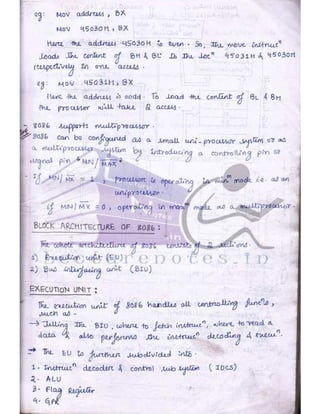 eg: MOV address, BX
MOV 45030H, BX
Here the address 45030H is even. So, The move instrucⁿ
loads the content of BH & BL in the locⁿ 45031H & 45030H
respectively in one access.
eg: MOV 45031H, BX
Here the address is odd. To load the content of BL & BH
the processor will take 2 access.
8086 supports multiprocessor.
8086 can be configured as a small uni-processor system or as
a multiprocessor system by introducing a controlling pin or
signal pin "MN/MX"
If MN/MX = 1, processor is operating in minᵐ mode i.e. as an
uniprocessor.
If MN/MX = 0, operating in maxᵐ mode as a multiprocessor.
BLOCK ARCHITECTURE OF 8086:
The whole architecture of 8086 consists of 2 sections
1) Execution unit (EU)
2) Bus interfacing unit (BIU)
EXECUTION UNIT:
The execution unit of 8086 handles all controlling funcⁿs,
such as -
→ Telling the BIU, where to fetch instrucⁿ, where to read a
data & also performs the instrucⁿ decoding & execuⁿ.
→ The EU is further subdivided into -
1. Instrucⁿ decoder & control sub system (IDCS)
2. ALU
3. Flag Register
4. GPR
notes.in